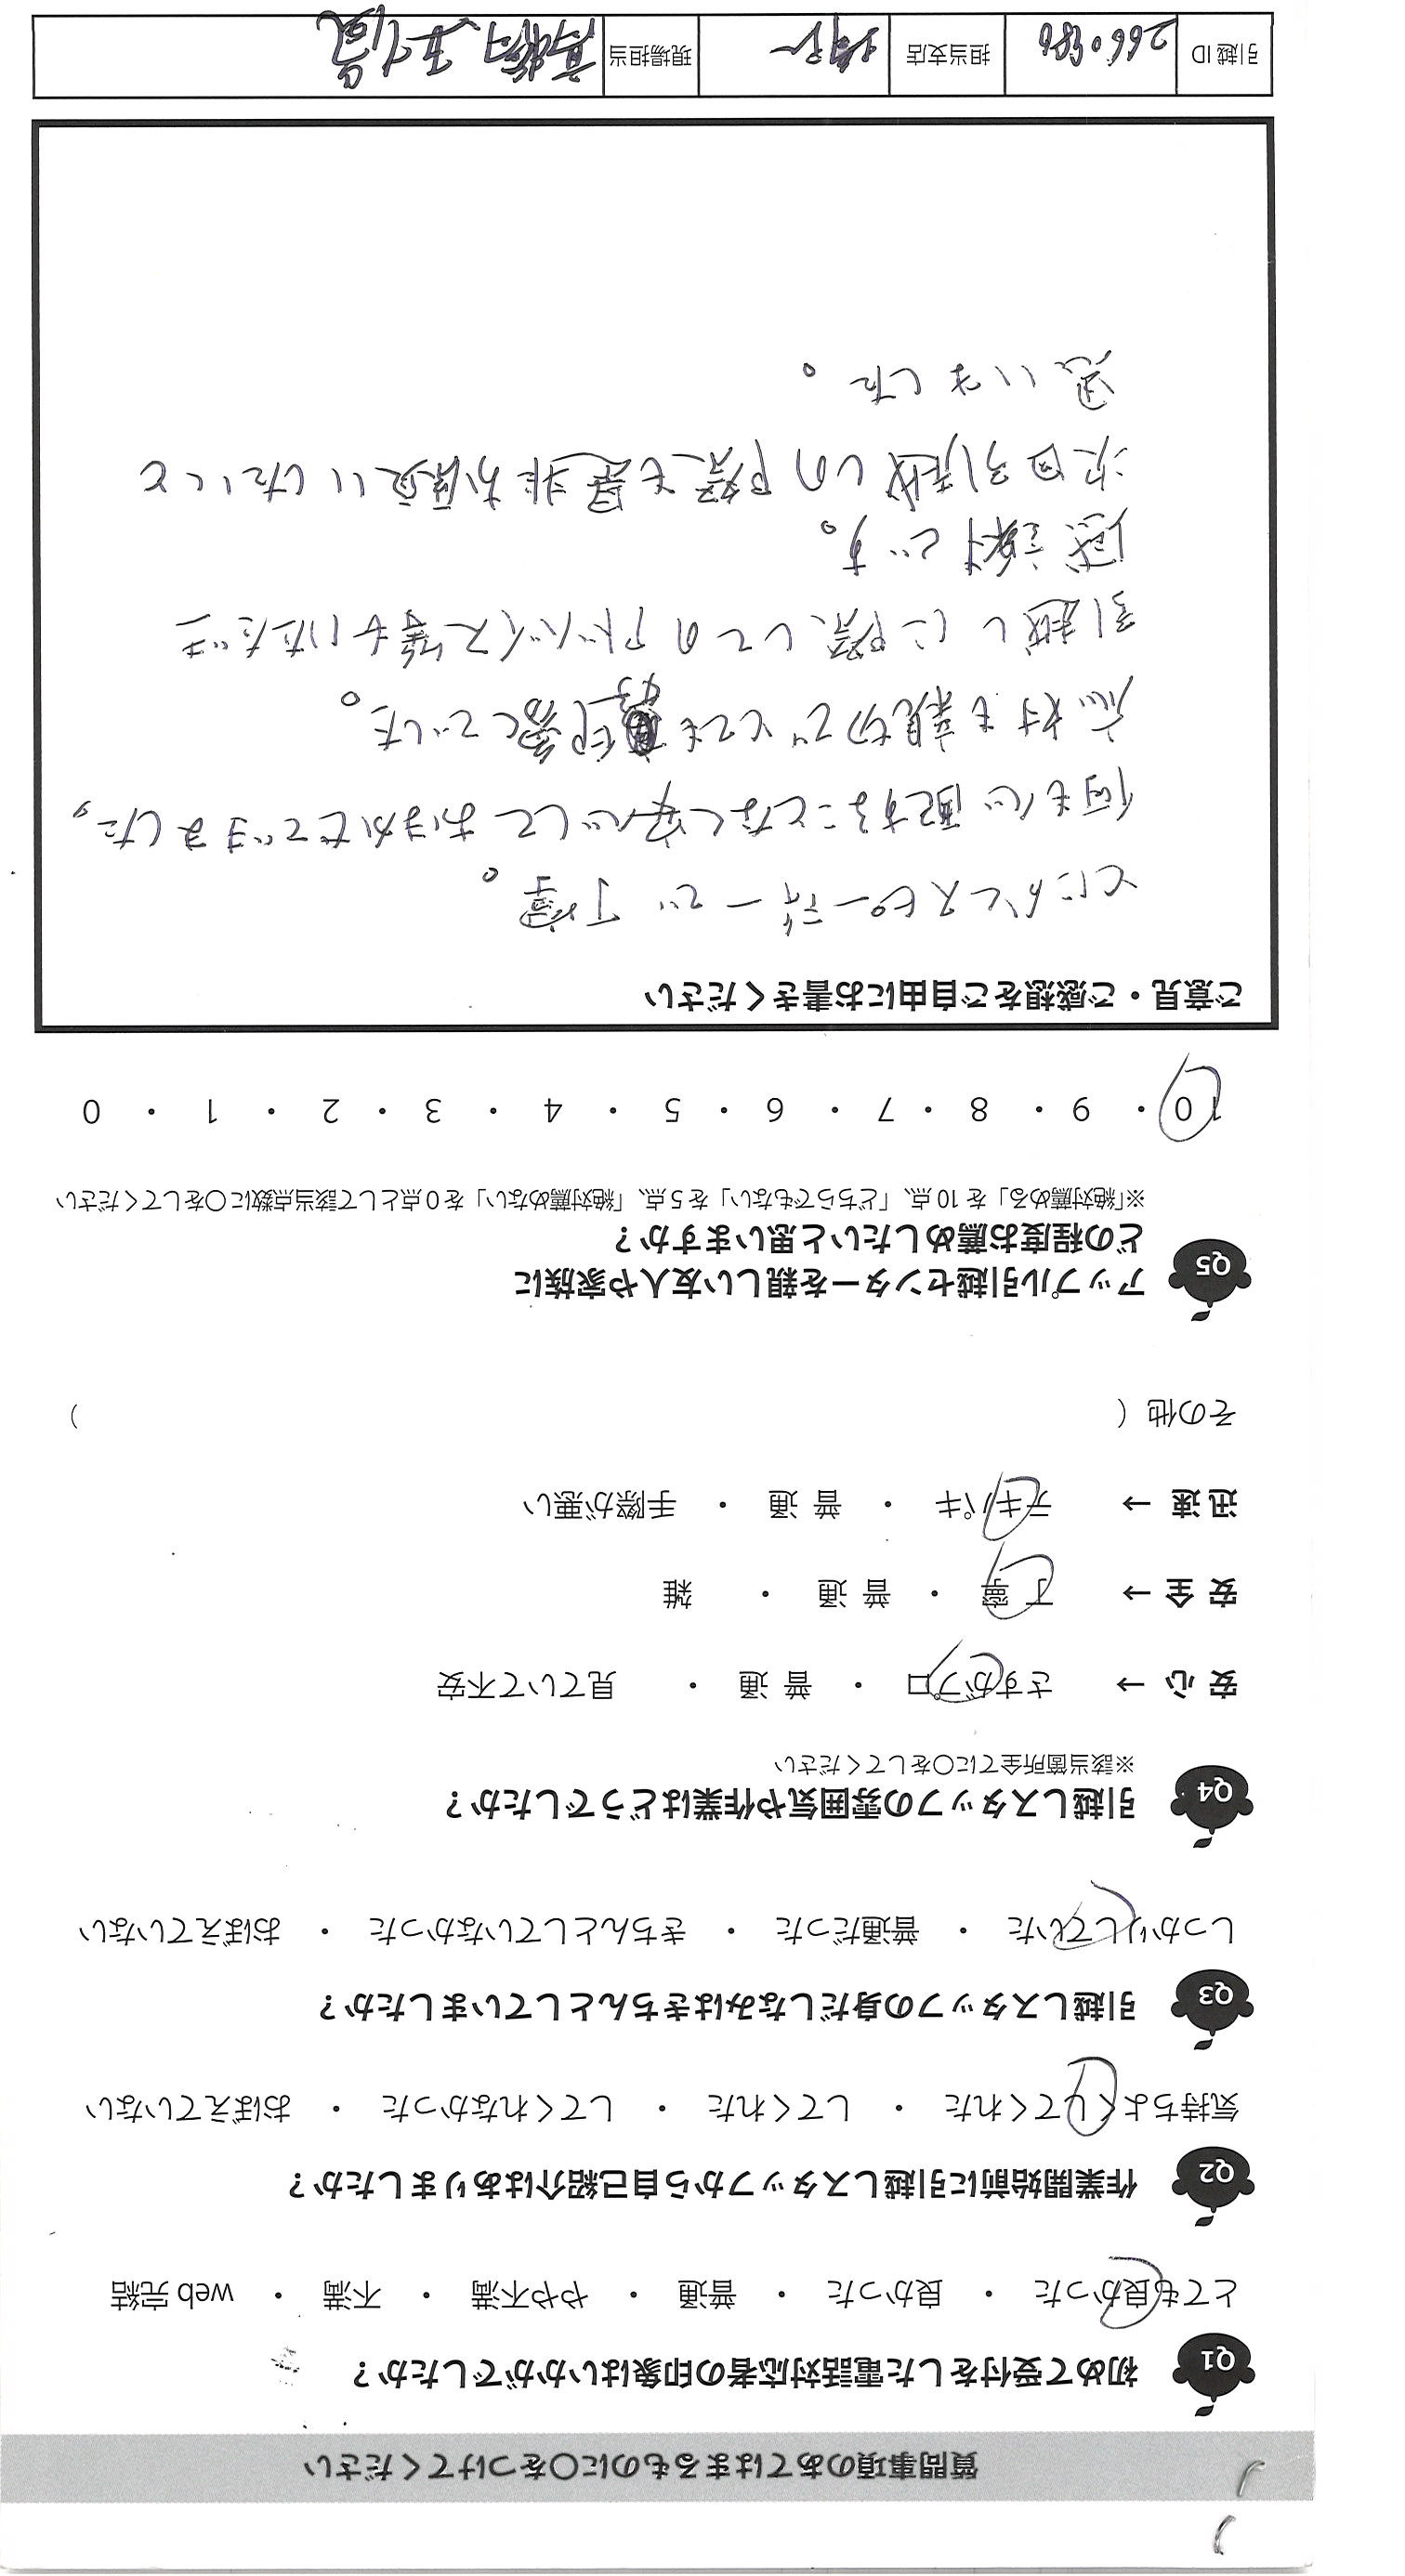 質問事項のあてはまるものに〇をつけてください
Q1 初めて受付をした電話対応者の印象はいかがでしたか？
とても良かった ・ 良かった ・ 普通 ・ やや不満 ・ 不満 ・ web完結
Q2 作業開始前に引越しスタッフから自己紹介はありましたか？
気持ちよくしてくれた ・ してくれた ・ してくれなかった ・ おぼえていない
Q3 引越しスタッフの身だしなみはきちんとしていましたか？
しっかりしていた ・ 普通だった ・ きちんとしていなかった ・ おぼえていない
Q4 引越しスタッフの雰囲気や作業はどうでしたか？
※該当箇所全てに〇をしてください
安心 → さすがプロ ・ 普通 ・ 見ていて不安
安全 → 丁寧 ・ 普通 ・ 雑
迅速 → テキパキ ・ 普通 ・ 手際が悪い
その他（ ）
Q5 アップル引越センターを親しい友人や家族に
どの程度お薦めしたいと思いますか？
※「絶対薦める」を10点、「どちらでもない」を5点、「絶対薦めない」を0点として該当点数に〇をしてください
10 ・ 9 ・ 8 ・ 7 ・ 6 ・ 5 ・ 4 ・ 3 ・ 2 ・ 1 ・ 0
ご意見・ご感想をご自由にお書きください
とにかくスピーディーで丁寧。
何も心配することなく安心しておまかせできました。
応対も親切でとても好印象でした。
引越しに際してのアドバイス等もいただき
感謝です。
次回引越しの際も是非お願いしたいと
思いました。
引越ID 担当支店 現場担当 髙橋